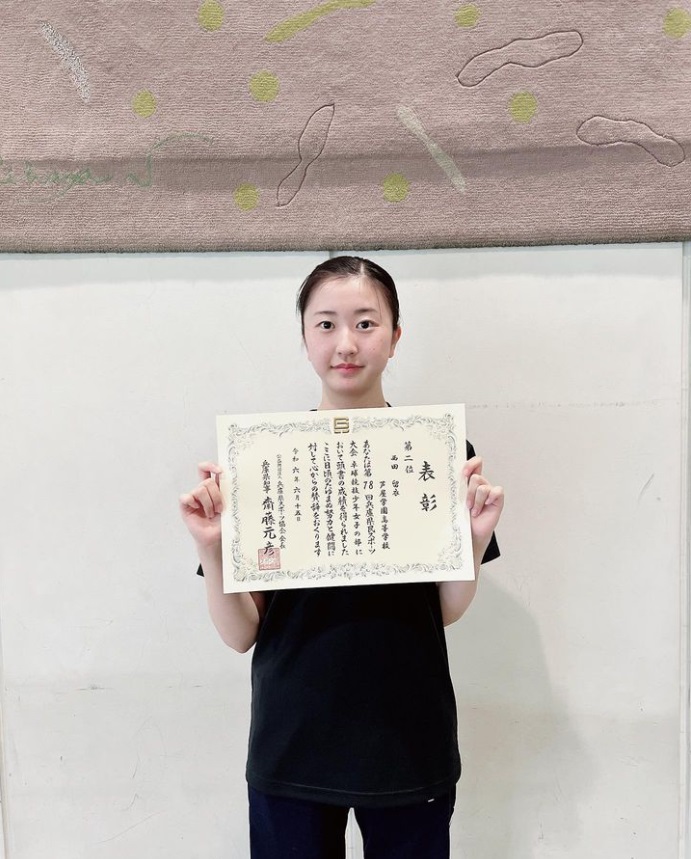 表彰
第二位
芦屋学園高等学校
西田 留衣
あなたは第78回兵庫県民スポーツ
大会 卓球競技少年女子の部に
おいて頭書の成績を得られました
ここに日頃のたゆまぬ努力と健闘に
対して心からの賛辞をおくります
令和六年六月十五日
公益財団法人 兵庫県スポーツ協会 会長
兵庫県知事 齋藤元彦